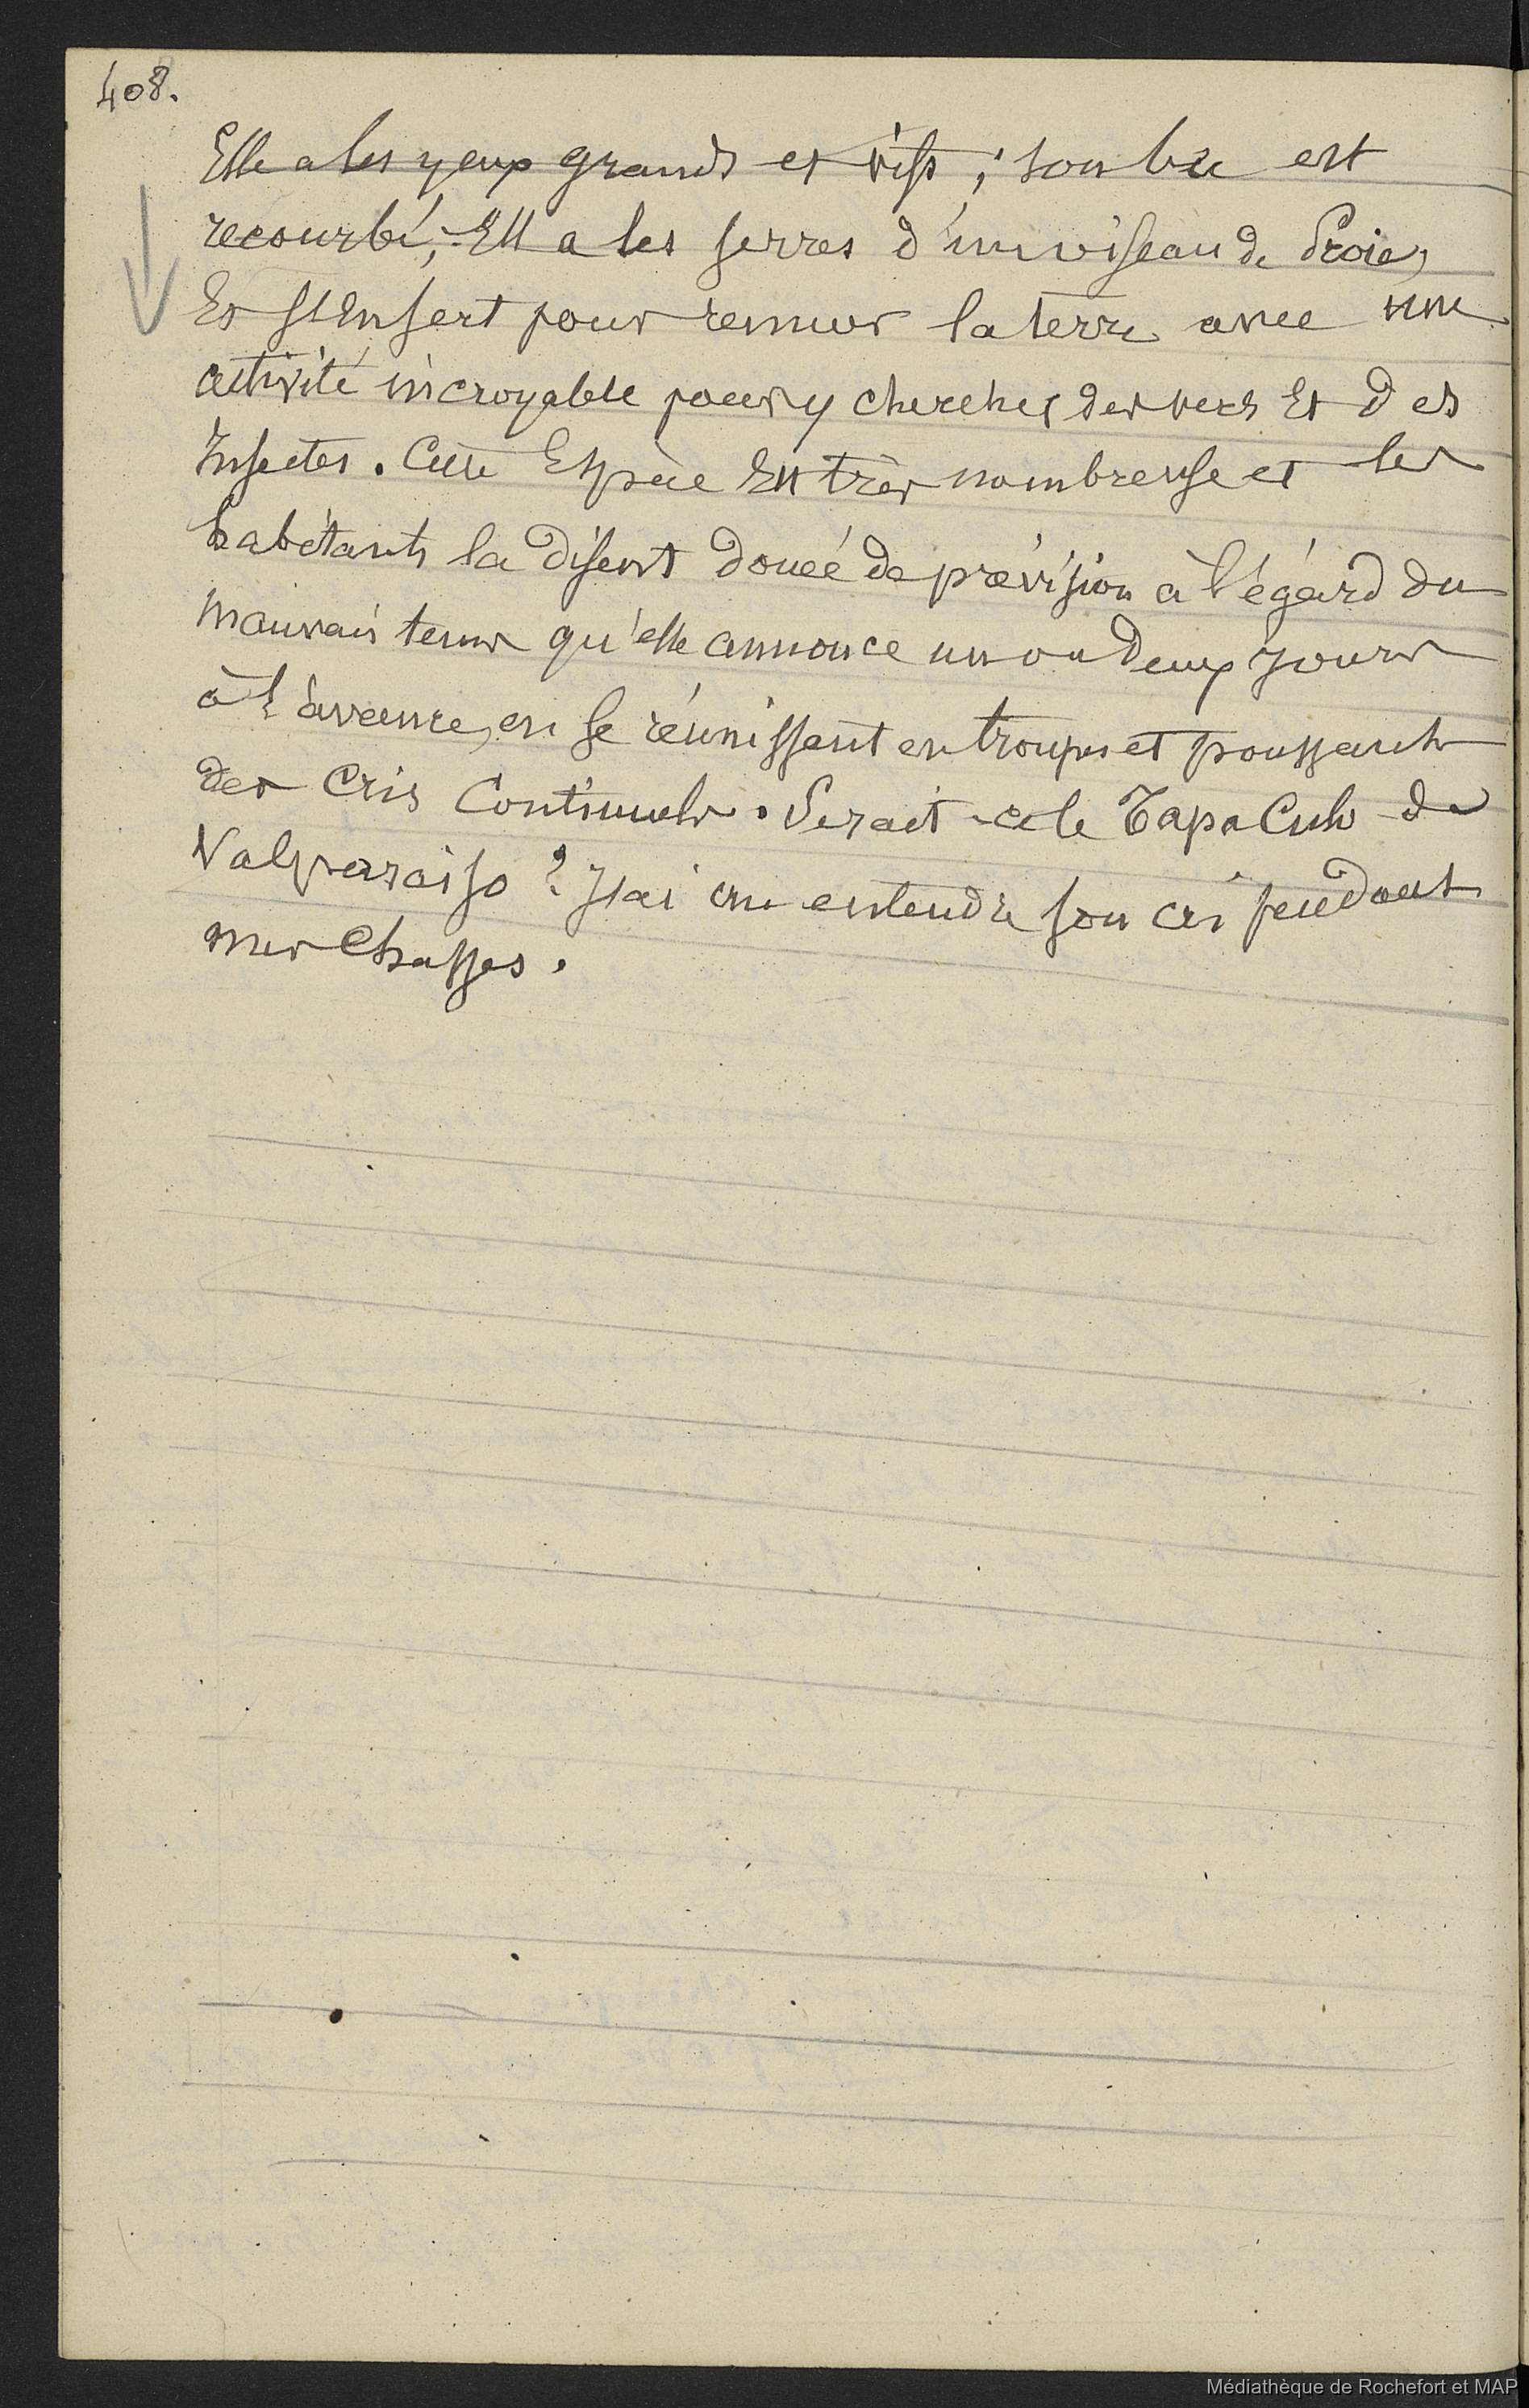 408.
Elle a les yeux grands et vifs ; son bec est
recourbé ; Ell a les serres d'un oiseau de Proie,
Et s'en sert pour remuer la terre avec une
activité incroyable pour y chercher des vers Et des
Insectes. Cette Espèce Est très nombreuse et les
habitants la disent douée de prévision à l'égard du
mauvais tems qu'elle annonce un ou deux jours
à l'avance, en se réunissant en troupes et poussant
des Cris Continuels. Serait-ce le Tapa Culo de
Valparaiso ? J'ai cru entendre son cri pendant
mes Chasses.
Médiathèque de Rochefort et MAP